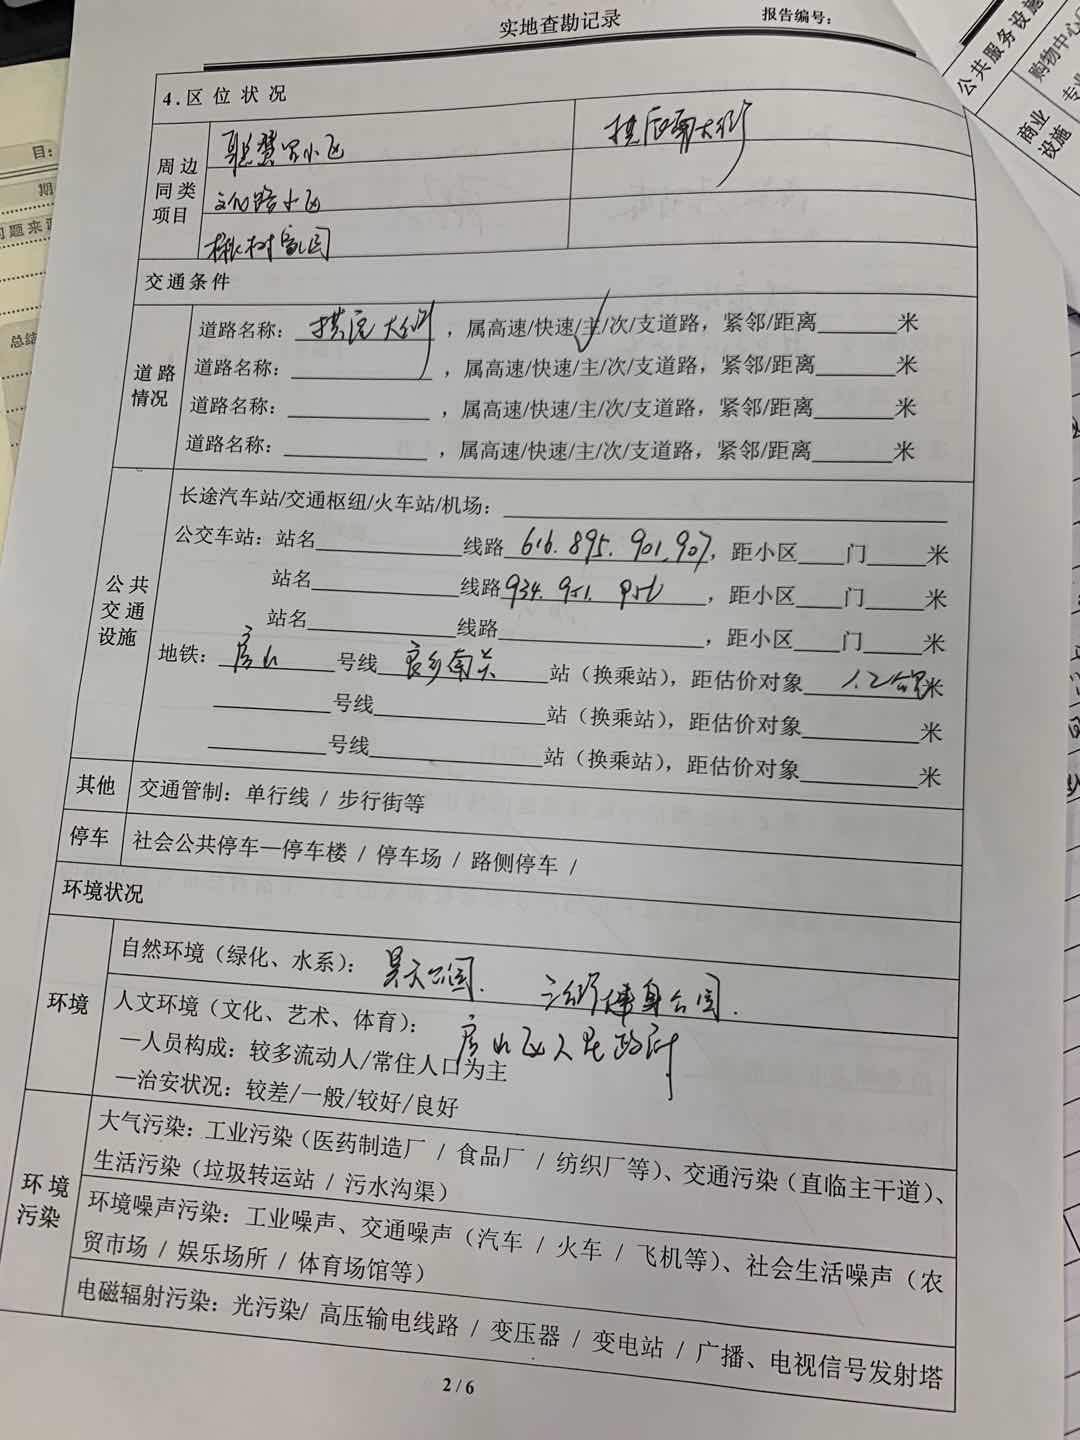 实地查勘记录
报告编号：
4.区 位 状 况
周边
同类
项目
聪慧 小区
拱辰南大街
文化路小区
楸树家园
交通条件
道路
情况
道路名称：拱辰大街，属高速/快速/主/次/支道路，紧邻/距离______米
道路名称：__________，属高速/快速/主/次/支道路，紧邻/距离______米
道路名称：__________，属高速/快速/主/次/支道路，紧邻/距离______米
道路名称：__________，属高速/快速/主/次/支道路，紧邻/距离______米
公共
交通
设施
长途汽车站/交通枢纽/火车站/机场：__________
公交车站：站名__________线路616. 895. 901. 907，距小区____门____米
站名__________线路934. 951. 956，距小区____门____米
站名__________线路__________，距小区____门____米
地铁：房山号线良乡南关站（换乘站），距估价对象1.2公里米
__________号线__________站（换乘站），距估价对象__________米
__________号线__________站（换乘站），距估价对象__________米
其他
交通管制：单行线 / 步行街等
停车
社会公共停车—停车楼 / 停车场 / 路侧停车 /
环境状况
环境
自然环境（绿化、水系）：昊天公园. 健身公园.
人文环境（文化、艺术、体育）：房山区人民政府
—人员构成：较多流动人/常住人口为主
—治安状况：较差/一般/较好/良好
环境
污染
大气污染：工业污染（医药制造厂 / 食品厂 / 纺织厂等）、交通污染（直临主干道）、
生活污染（垃圾转运站 / 污水沟渠）
环境噪声污染：工业噪声、交通噪声（汽车 / 火车 / 飞机等）、社会生活噪声（农
贸市场 / 娱乐场所 / 体育场馆等）
电磁辐射污染：光污染/ 高压输电线路 / 变压器 / 变电站 / 广播、电视信号发射塔
2 / 6
公共服务设施
购物中心
专业
商业
设施
目：
期
问题来源
总结